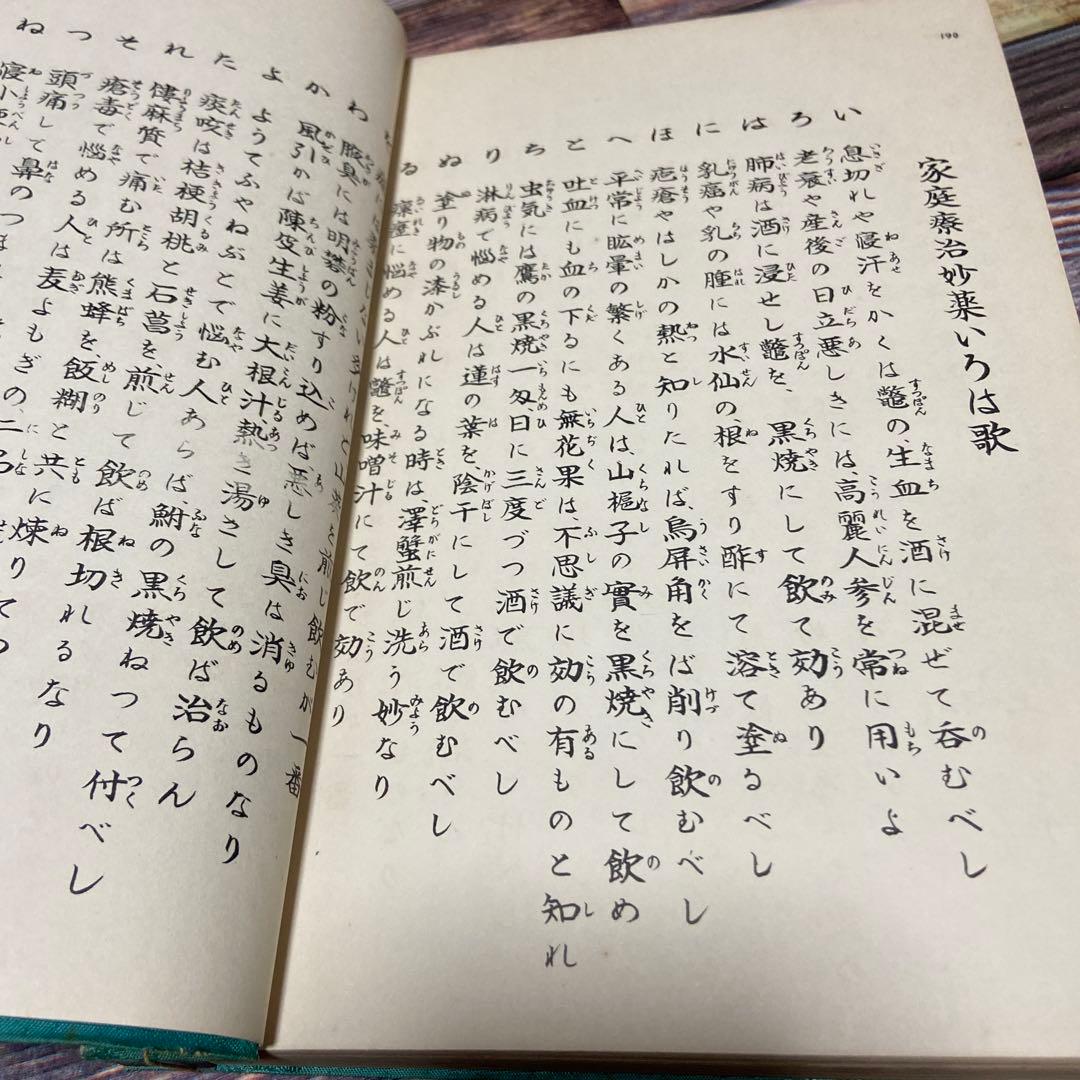 190
家庭療治妙薬いろは歌
い 息切れや寝汗をかくは鼈の、生血を酒に混ぜて呑むべし
ろ 老衰や産後の日立悪しきには、高麗人参を常に用いよ
は 肺病は酒に浸せし鼈を、黒焼にして飲て効あり
に 乳癌や乳の腫には水仙の根をすり酢にて溶て塗るべし
ほ 疱瘡やはしかの熱と知りたれば、烏犀角をば削り飲むべし
へ 平常に眩暈の繁くある人は、山梔子の實を黒焼にして飲め
と 吐血にも血の下るにも無花果は、不思議に効の有ものと知れ
ち 虫気には鷹の黒焼一匁、日に三度づつ酒で飲むべし
り 淋病で悩める人は蓮の葉を陰干にして酒で飲むべし
ぬ 塗り物の漆かぶれになる時は、澤蟹煎じ洗う妙なり
る 瘰癧に悩める人は鼈を、味噌汁にて飲で効あり
を 煎じ飲むが一番
わ 腋臭には明礬の粉すり込めば、悪しき臭は消るものなり
か 風引かば陳皮生姜に大根汁、熱き湯さして飲ば治らん
よ ようてふやねぶとで悩む人あらば、鮒の黒焼ねつて付べし
た 痰咳は桔梗胡桃と石菖を、煎じて飲ば根切れるなり
れ 僂麻質で痛む所は熊蜂を、飯糊と共に煉りてつ
そ 瘡毒で悩める人は麦よもぎの、二名
つ 頭痛して鼻のつま
ね 寝小便